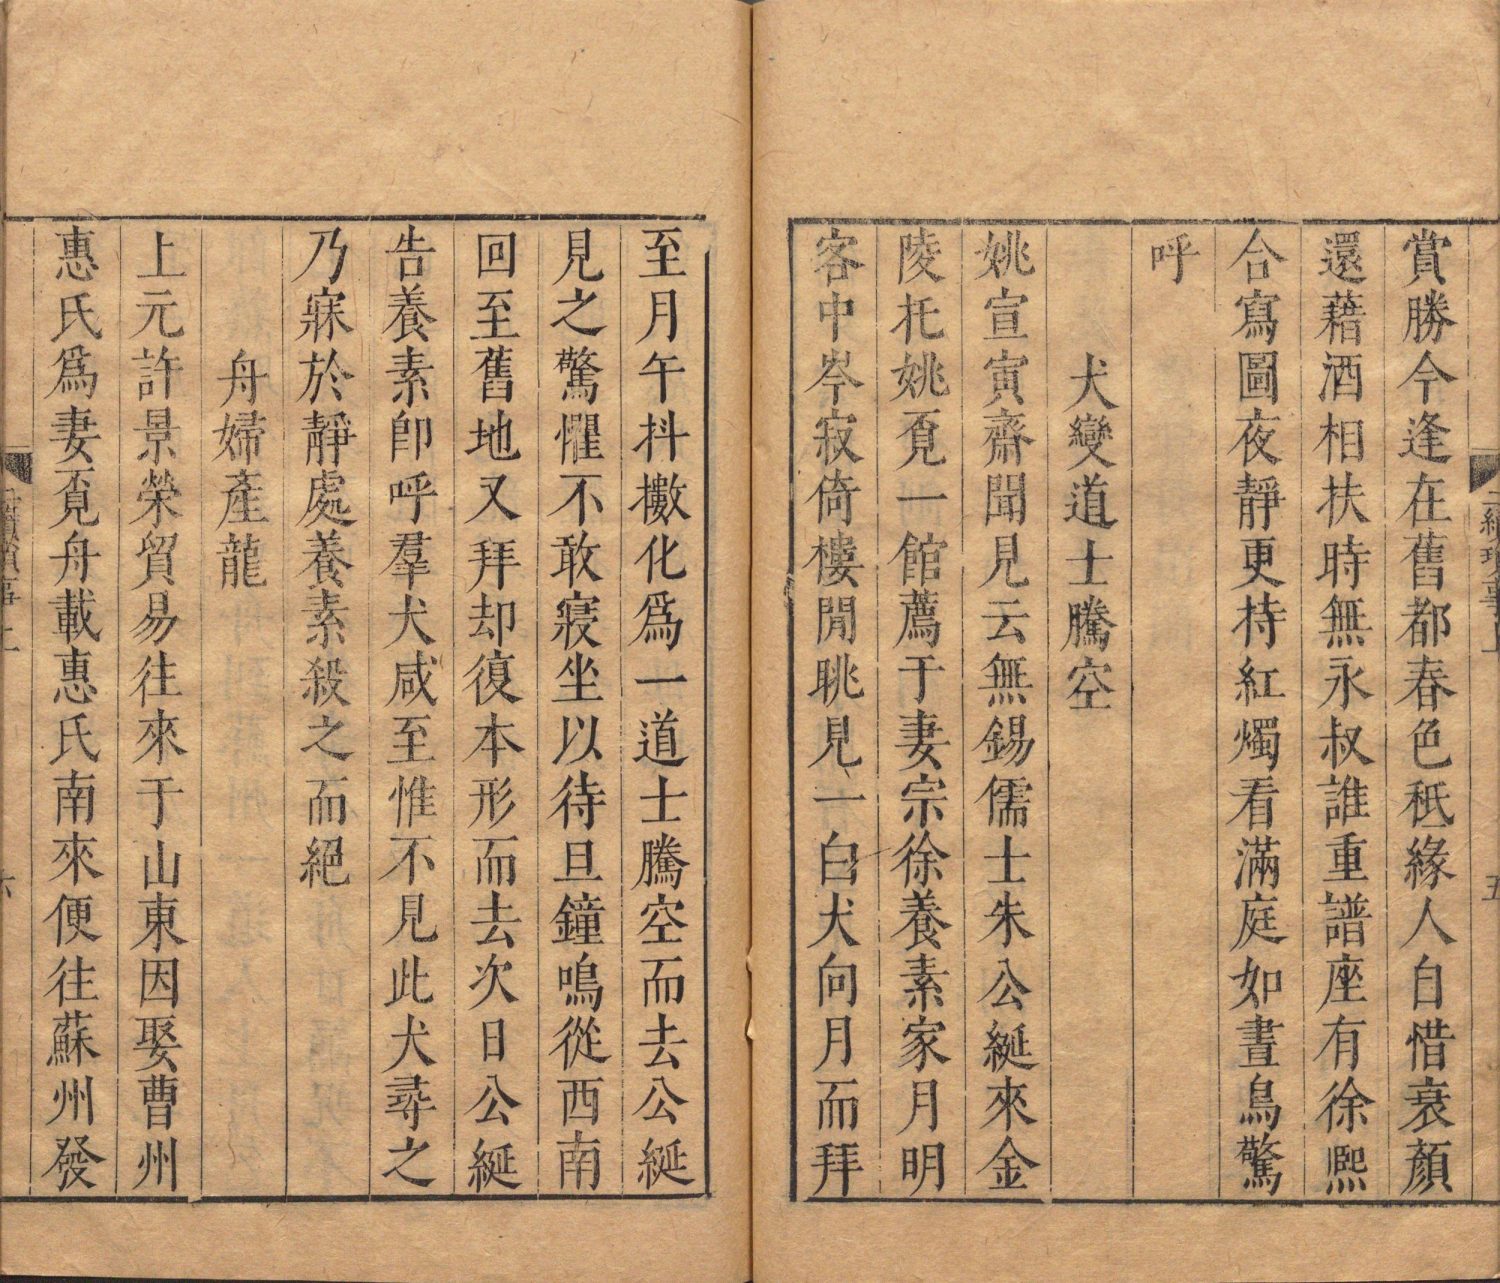 賞勝今逢在舊都春色秪緣人自惜衰顏
還藉酒相扶時無永叔誰重譜座有徐熙
合寫圖夜靜更持紅燭看滿庭如晝鳥驚
呼
犬變道士騰空
姚宣寅齋聞見云無錫儒士朱公綖來金
陵托姚覔一館薦于妻宗徐養素家月明
客中岑寂倚樓閒眺見一白犬向月而拜
至月午抖擻化爲一道士騰空而去公綖
見之驚懼不敢寢坐以待旦鐘鳴從西南
回至舊地又拜却復本形而去次日公綖
告養素卽呼羣犬咸至惟不見此犬尋之
乃寐於靜處養素殺之而絕
舟婦產龍
上元許景榮貿易往來于山東因娶曹州
惠氏爲妻覔舟載惠氏南來便往蘇州發